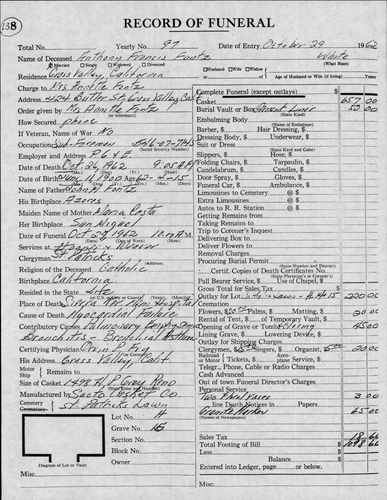 138
RECORD OF FUNERAL
Total No. Yearly No. 97 Date of Entry October 29 1962
Name of Deceased Anthony Francis Fontz White
Married Single Widowed Divorced Husband Wife Widow (What Race)
Residence Grass Valley, California Age of Husband or Wife (if living) Years
Charge to Mrs Annette Fontz
Address 424 Butler St. Grass Valley Cal
Order Given by Mrs Annette Fontz
(or Informant)
How Secured phone
If Veteran, of War No
Occupation Sub-Foreman
(Social Security Number)
Employer and Address P.G. & E.
Date of Death Oct. 26, 1962 9:05 A.M.
Date of Birth 1900 Age 62
Name of Father Fontz
His Birthplace Azores
Maiden Name of Mother Maria Costa
Her Birthplace San Miguel
Date of Funeral Oct 29, 1962 10:00 A.M.
Services at Hooper & Weaver
Clergyman St Patricks
Religion of the Deceased Catholic
Birthplace California
Resided in the State Life
Place of Death Sierra Nev. Mem Hospital
Cause of Death Myocardial Failure
Contributory Causes Pulmonary Emphysema
Bronchitis - Bronchial Asthma
Certifying Physician
His Address Grass Valley, Calif
Motor
Ship Remains to
Size of Casket Gray
Manufactured by Casket Co.
Cemetery St. Patricks Lawn
Crematory
Lot No. 4
Grave No.
Section No.
Block No.
Owner
Diagram of Lot or Vault
Complete Funeral (except outlays) $
Casket 657.00
Burial Vault or Box Cement Liner 50.00
(State Kind)
Embalming Body
(Name of Embalmer)
Barber, $ Hair Dressing, $
Dressing Body, $ Underwear, $
Suit or Dress
(State Kind and Color)
Slippers, $ Hose, $
Folding Chairs, $ Tarpaulin, $
Candelabrum, $ Candles, $
Door Spray, $ Gloves, $
Funeral Car, $ Ambulance, $
Limousines to Cemetery @ $
Extra Limousines @ $
Autos to R. R. Station @ $
Getting Remains from
Taking Remains to
Trip to Coroner's Inquest
Delivering Box to
Deliver Flowers to
Removal Charges
Procuring Burial Permit
Certif. Copies of Death Certificates No.
Pall Bearer Service Use of Chapel, $
Gross Total for Sales Tax $
Outlay for Lot 220.00
Cremation
Flowers, $ Palms, $ Matting, $ 20.00
Rental of Tent, $ of Temporary Vault, $
Opening of Grave or Tomb Closing 45.00
Lining Grave, $ Lowering Device, $
Outlay for Shipping Charges
Clergyman, $ Singers, $ Organist, $ 20.00
Railroad or Motor Tickets, $ Aeroplane Service, $
Telegr., Phone, Cable or Radio Charges
Cash Advanced
Out of town Funeral Director's Charges
Personal Service
line Death Notices in Papers 3.00
Granite Marker 65.00
(Names of Newspapers)
Sales Tax 18.66
Total Footing of Bill $ 1098.66
Less
Balance $
Entered into Ledger, page or below.
Misc.